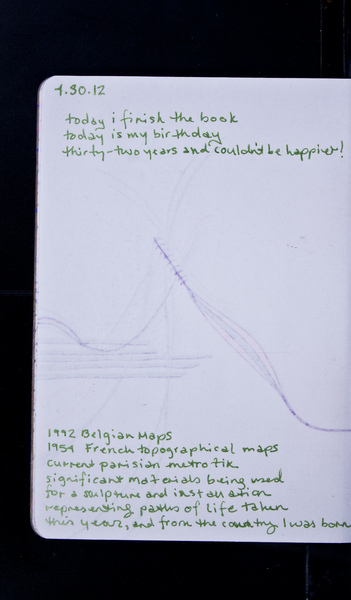 1.30.12
today i finish the book
today is my birthday
thirty-two years and couldn't be happier!
1992 Belgian Maps
1954 French topographical maps
current parisian metro tik
significant materials being used
for a sculpture and installation
representing paths of life taken
this year, and from the country I was born